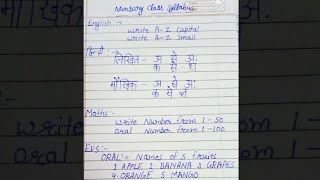 Nursery Class Syllabus
English :-
Write A-Z Capital
Write A-Z Small
हिन्दी :-
लिखित :- अ से अः
क से ज्ञ
मौखिक :- अ से अः
क से ज्ञ
Maths :-
Write Number from 1-50
Oral Number from 1-100
EVS :-
ORAL :- Names of 5 fruits
1 APPLE 2 BANANA 3 GRAPES
4. ORANGE 5 MANGO